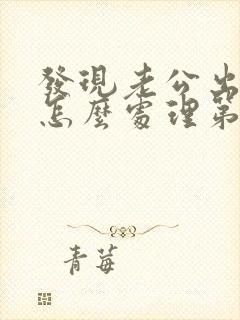 發現老公出
怎麼處理第
青莓